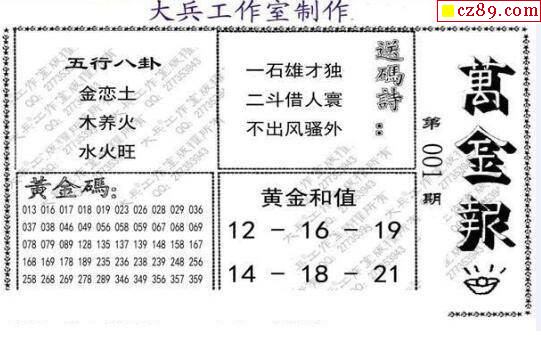 大兵工作室制作
cz89.com
五行八卦
金恋土
木养火
水火旺
送碼詩：
一石雄才独
二斗借人寰
不出风骚外
萬金報
第001期
黃金碼：
013 016 017 018 019 023 026 028 029 036
037 038 046 049 056 059 067 068 069 077
078 079 089 128 135 137 138 139 147 148
149 157 158 166 167 168 169 189 246 256
258 268 269 278 289 346 347 356 357 359
黄金和值
12 - 16 - 19
14 - 18 - 21